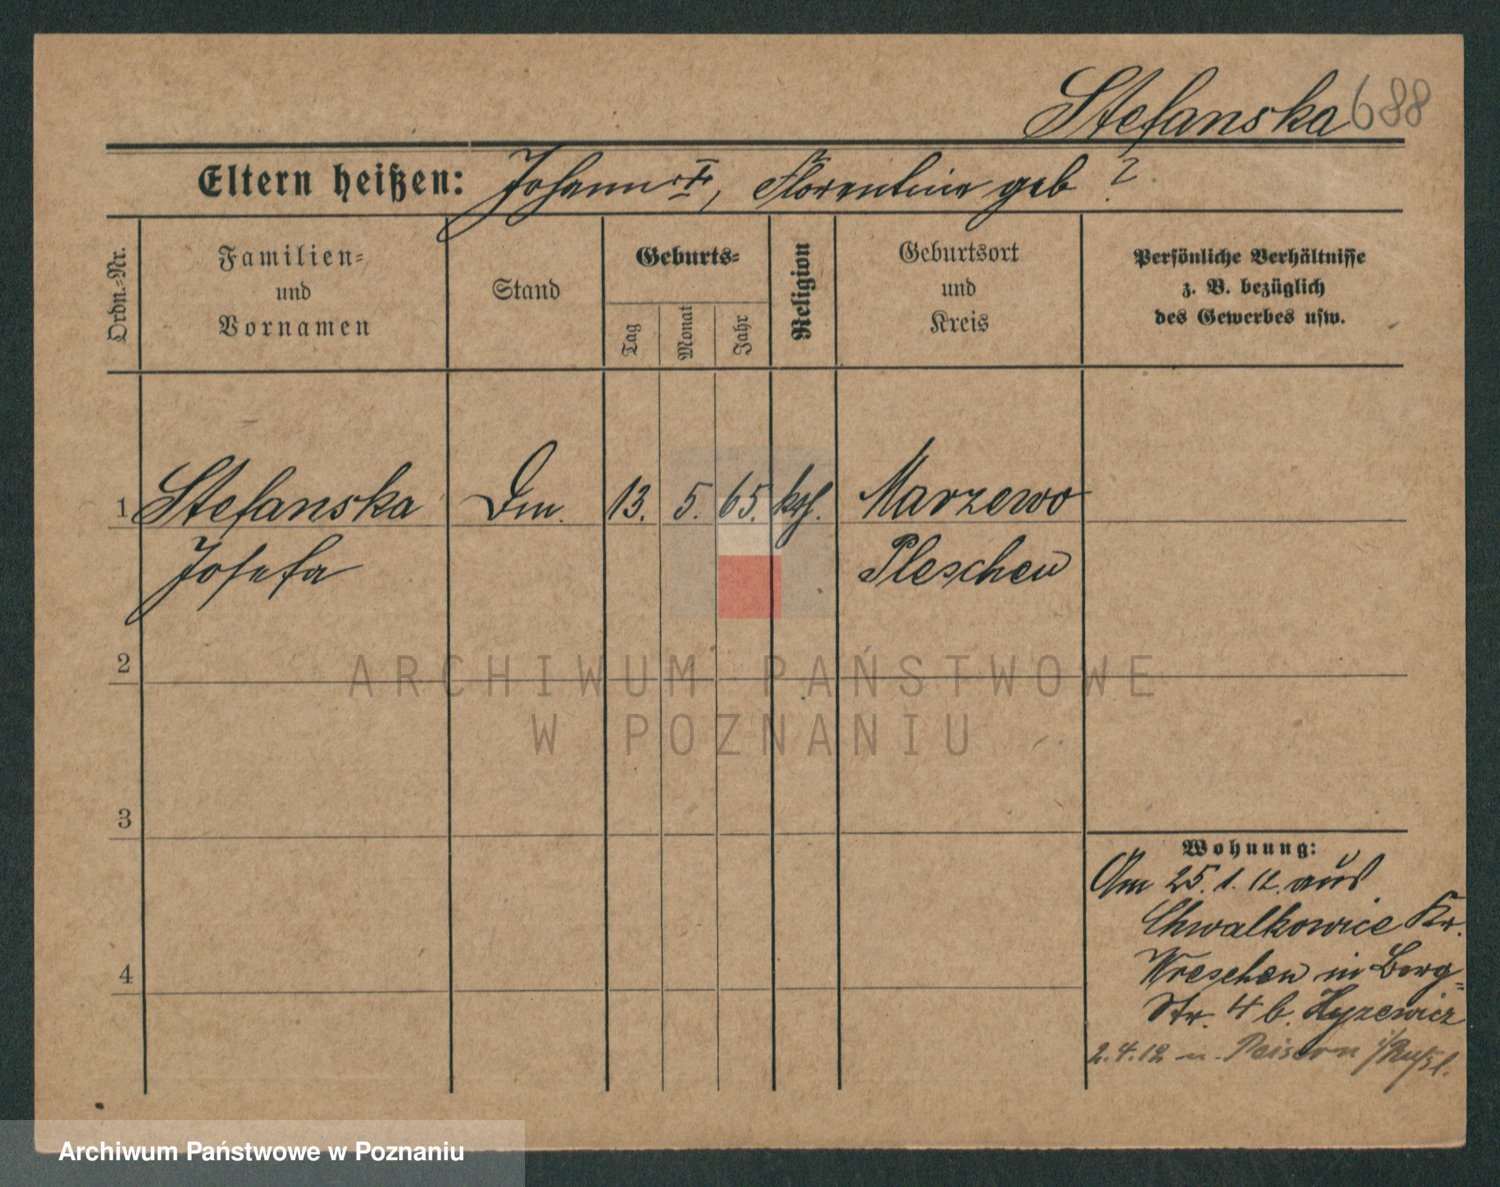 Stefanska 688
Eltern heißen: Johann †, Florentine geb ?
Ordn.-Nr.
Familien-
und
Vornamen
Stand
Geburts-
Tag
Monat
Jahr
Religion
Geburtsort
und
Kreis
Persönliche Verhältnisse
z. B. bezüglich
des Gewerbes usw.
1 Stefanska Dm. 13. 5. 65. kth. Marzewo
Josefa Pleschen
2
3
4
Wohnung:
Am 25.1.12. aus
Chwalkowice Kr.
Wreschen in Berg-
Str. 4 b. Hyzewicz
2.4.12 n. Peisern i/Rußl.
ARCHIWUM PAŃSTWOWE
W POZNANIU
Archiwum Państwowe w Poznaniu